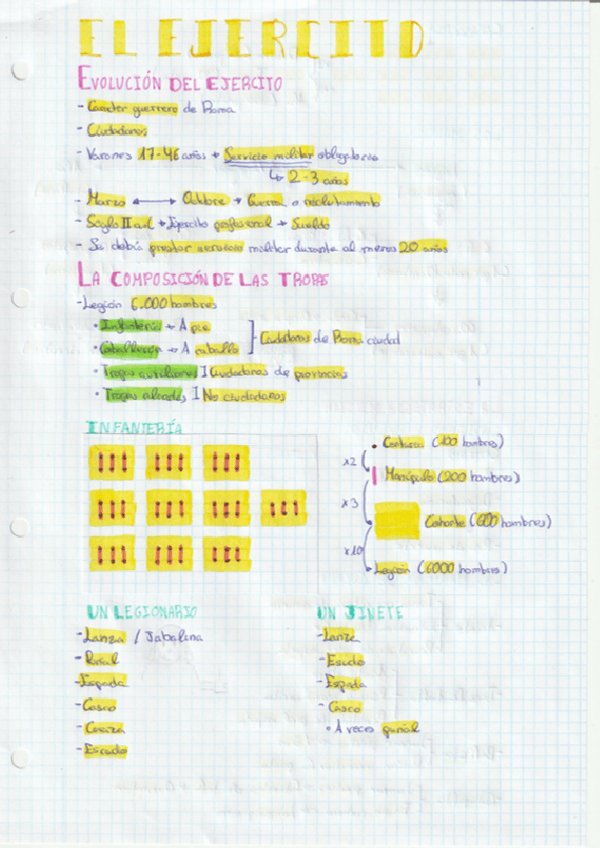 EL EJERCITO
EVOLUCIÓN DEL EJERCITO
- Caracter guerrero de Roma
- Ciudadanos
- Varones 17-46 años → Servicio militar obligatorio
↳ 2-3 años
- Marzo ↔ Octubre → Guerra o reclutamiento
- Siglo II a.C → Ejercito profesional → Sueldo
- Se debía prestar servicio militar durante al menos 20 años
LA COMPOSICIÓN DE LAS TROPAS
- Legión 6.000 hombres
• Infantería → A pie
• Caballería → A caballo
- Ciudadanos de Roma ciudad
• Tropas auxiliares | Ciudadanos de provincias
• Tropas aliadas | No ciudadanos
INFANTERÍA
• Centuria (100 hombres)
x2
Manípulo (200 hombres)
x3
Cohorte (600 hombres)
x10
Legión (6000 hombres)
UN LEGIONARIO
- Lanza / Jabalina
- Puñal
- Espada
- Casco
- Coraza
- Escudo
UN JINETE
- Lanza
- Escudo
- Espada
- Casco
• A veces puñal